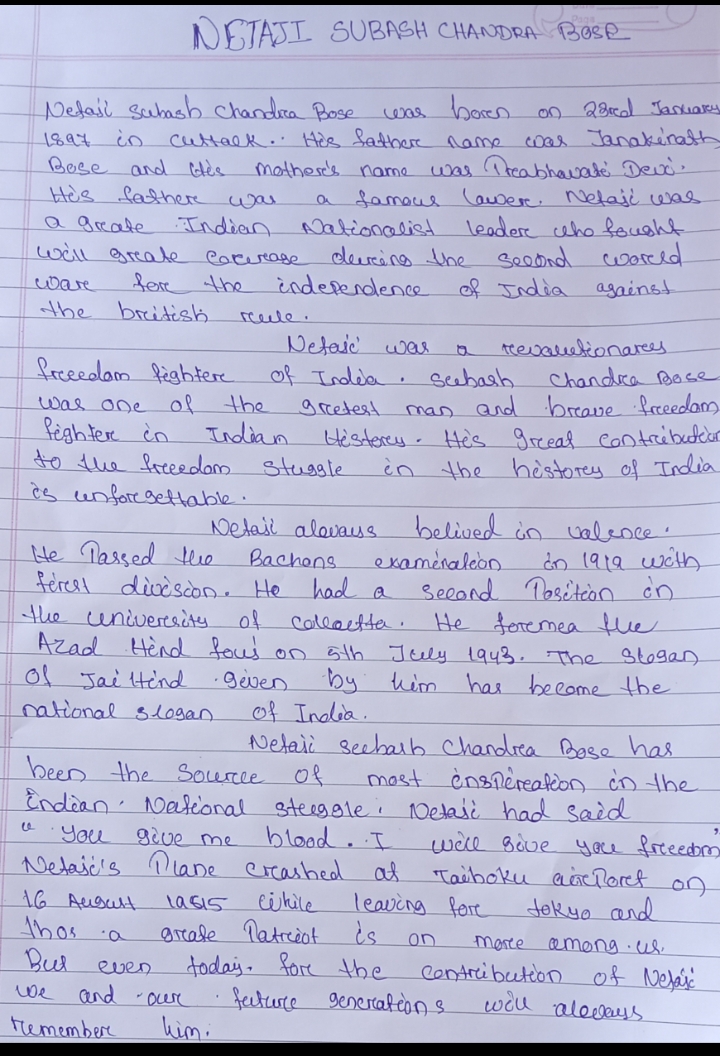 NETAJI SUBASH CHANDRA BOSE
Netaji Subash Chandra Bose was born on 23rd January
1897 in cuttack. His father name was Janakinath
Bose and His mother's name was Prabhavati Devi.
His father was a famous lawer. Netaji was
a greate Indian Nationalist leader who fought
will greate courage during the second world
ware for the independence of India against
the british rule.
Netaji was a revolutionary
freedom fighter of India. Subash Chandra Bose
was one of the gretest man and brave freedom
fighter in Indian History. His great contribution
to the freedom stuggle in the history of India
is unforgettable.
Netaji always belived in valence.
He Passed the Bachons examination in 1919 with
first division. He had a second Position in
the university of calcactta. He formea the
Azad Hind fouj on 5th July 1943. The slogan
of Jai Hind given by him has become the
national slogan of India.
Netaji Subash Chandra Bose has
been the source of most inspiration in the
indian. National struggle. Netaji had said
"You give me blood. I will give you freedom"
Netaji's Plane crashed at Taihoku airport on
16 August 1945 while leaving for tokyo and
thos a greate Patriot is on more among us.
But even today. for the contribution of Netaji
we and our future generations will always
remember him.